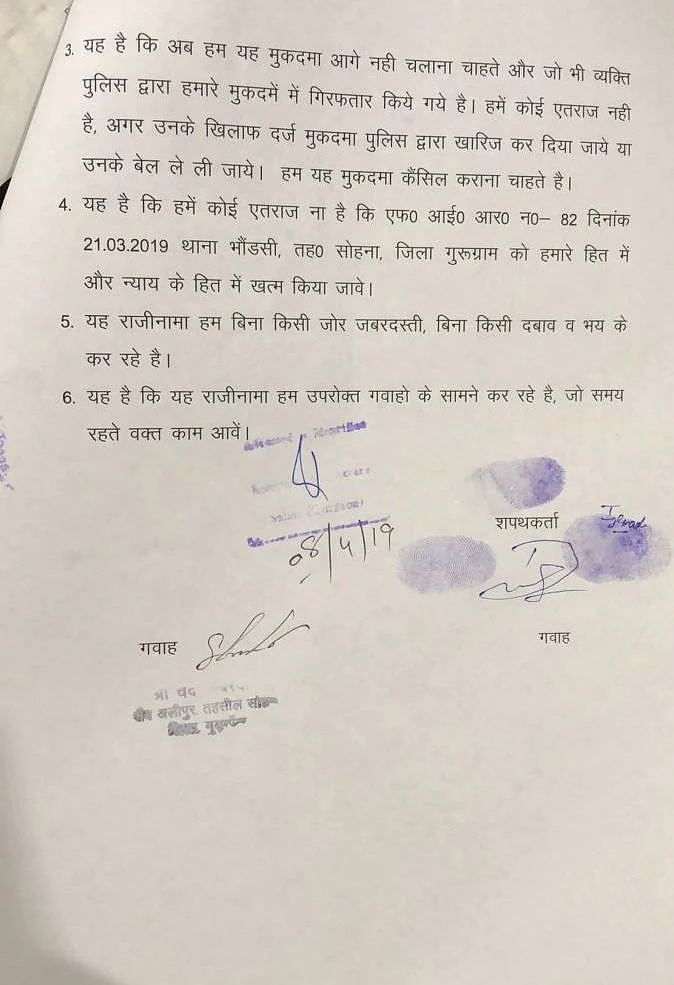 3. यह है कि अब हम यह मुकदमा आगे नही चलाना चाहते और जो भी व्यक्ति
पुलिस द्वारा हमारे मुकदमें में गिरफतार किये गये है। हमें कोई एतराज नही
है, अगर उनके खिलाफ दर्ज मुकदमा पुलिस द्वारा खारिज कर दिया जाये या
उनके बेल ले ली जाये। हम यह मुकदमा कैंसिल कराना चाहते है।
4. यह है कि हमें कोई एतराज ना है कि एफ0 आई0 आर0 न0– 82 दिनांक
21.03.2019 थाना भौंडसी, तह0 सोहना, जिला गुरूग्राम को हमारे हित में
और न्याय के हित में खत्म किया जावे।
5. यह राजीनामा हम बिना किसी जोर जबरदस्ती, बिना किसी दबाव व भय के
कर रहे है।
6. यह है कि यह राजीनामा हम उपरोक्त गवाहो के सामने कर रहे है, जो समय
रहते वक्त काम आवें।
शपथकर्ता
08/4/19
गवाह
गवाह
श्री चंद
अलीपुर, तहसील